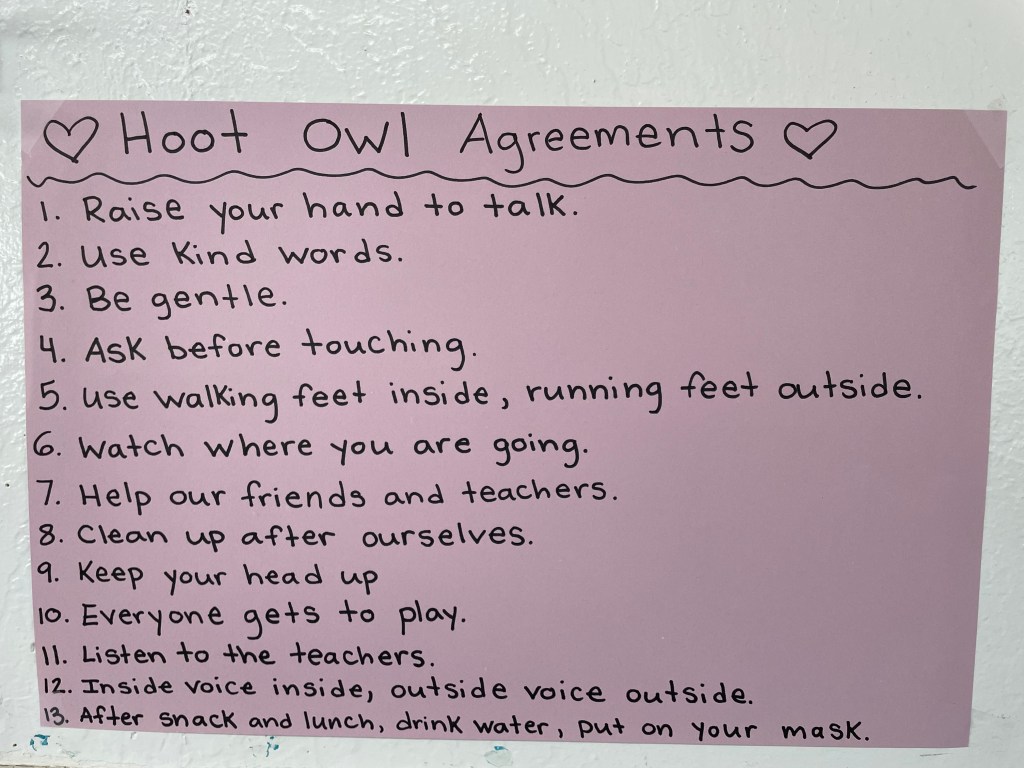 ♡ Hoot Owl Agreements ♡
1. Raise your hand to talk.
2. Use Kind words.
3. Be gentle.
4. Ask before touching.
5. Use walking feet inside, running feet outside.
6. Watch where you are going.
7. Help our friends and teachers.
8. Clean up after ourselves.
9. Keep your head up
10. Everyone gets to play.
11. Listen to the teachers.
12. Inside voice inside, outside voice outside.
13. After snack and lunch, drink water, put on your mask.